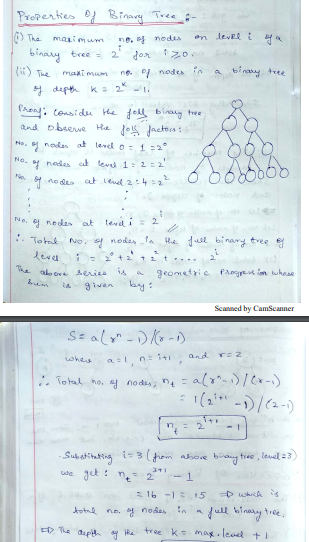 Properties Of Binary Tree :-
(i) The maximum no. of nodes on level i of a
binary tree = 2^i for i ≥ 0.
(ii) The maximum no. of nodes in a binary tree
of depth k = 2^k - 1.
Proof: Consider the foll binary tree
and observe the foll factors:
No. of nodes at level 0 = 1 = 2^0
No. of nodes at level 1 = 2 = 2^1
No. of nodes at level 2 : 4 = 2^2
No. of nodes at level i = 2^i
∴ Total No. of nodes in the full binary tree of
level i = 2^0 + 2^1 + 2^2 + .... 2^i
The above series is a geometric progression whose
sum is given by:
Scanned by CamScanner
S = a(r^n - 1)/(r-1)
where a=1, n=i+1, and r=2
∴ Total no. of nodes, n_t = a(r^n - 1)/(r-1)
= 1(2^{i+1} - 1)/(2-1)
n_t = 2^{i+1} - 1
Substituting i=3 (from above binary tree, level=3)
we get : n_t = 2^{3+1} - 1
= 16 - 1 = 15 ⇒ which is
total no. of nodes in a full binary tree.
⇒ The depth of the tree k = max. level + 1